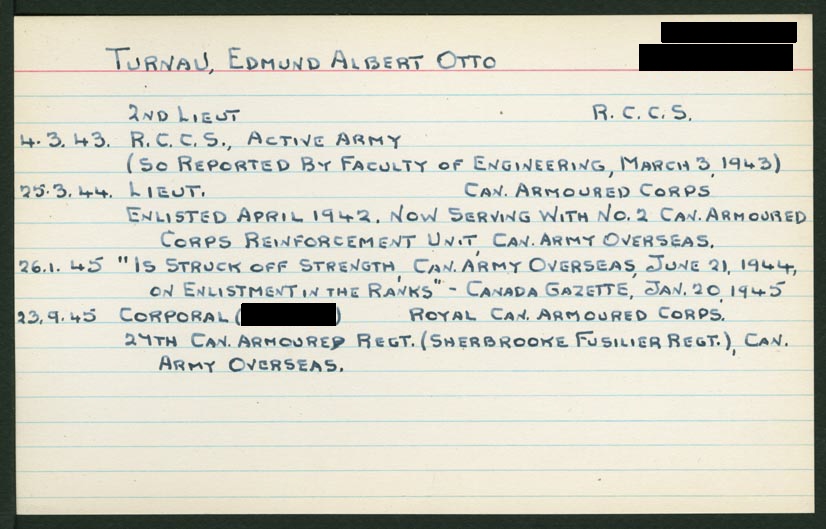 TURNAU, EDMUND ALBERT OTTO
2ND LIEUT R.C.C.S.
4.3.43. R.C.C.S., ACTIVE ARMY
(SO REPORTED BY FACULTY OF ENGINEERING, MARCH 3, 1943)
25.3.44. LIEUT. CAN. ARMOURED CORPS
ENLISTED APRIL 1942. NOW SERVING WITH NO. 2 CAN. ARMOURED
CORPS REINFORCEMENT UNIT, CAN. ARMY OVERSEAS.
26.1.45 "IS STRUCK OFF STRENGTH, CAN. ARMY OVERSEAS, JUNE 21, 1944,
ON ENLISTMENT IN THE RANKS" - CANADA GAZETTE, JAN. 20, 1945
23.9.45 CORPORAL ( ) ROYAL CAN. ARMOURED CORPS.
27TH CAN. ARMOURED REGT. (SHERBROOKE FUSILIER REGT.), CAN.
ARMY OVERSEAS.